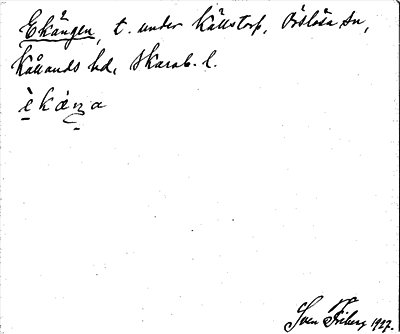 Ekängen, t. under Källstorp, Örslösa sn,
Kållands hd, Skarab. l.
è̱káŋa
Sven Friberg 1927.